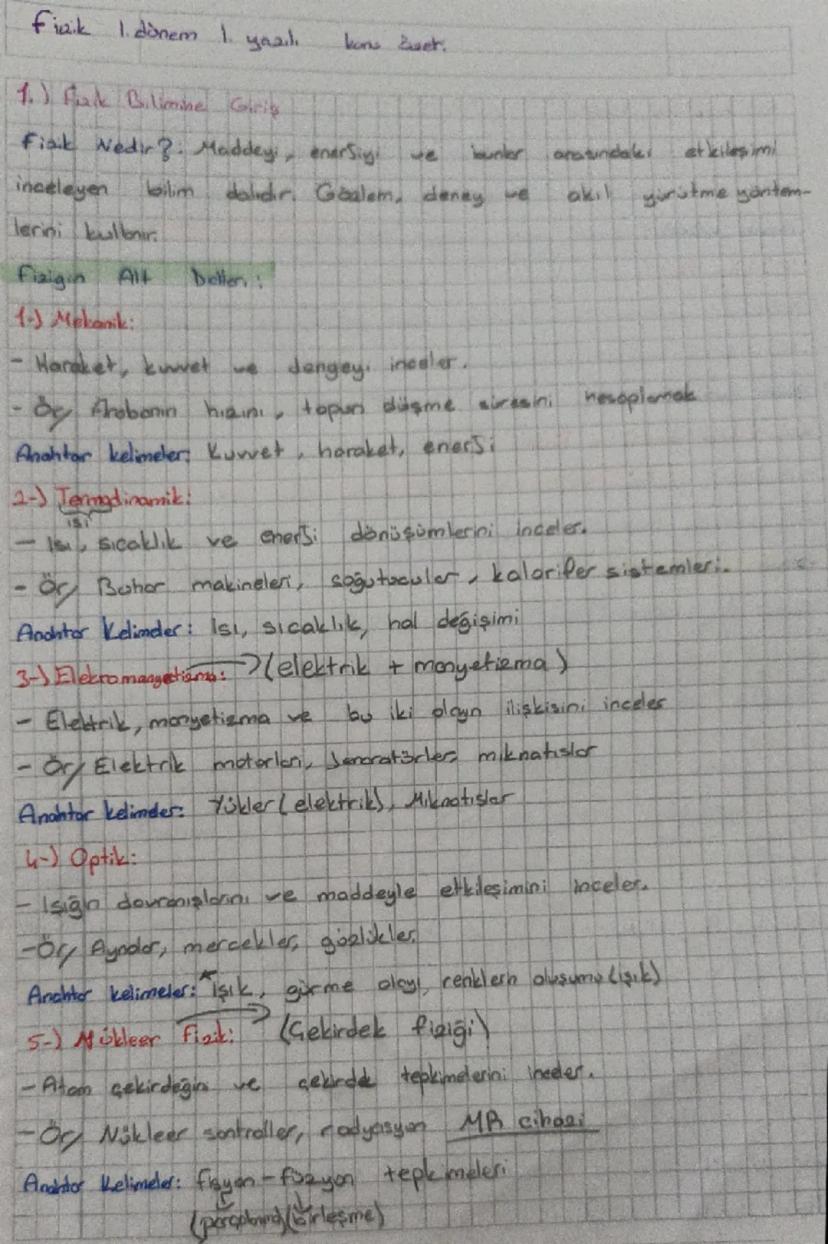 Fizik 1. dönem 1. yazılı konu özet.
1.) Fizik Bilimine Giriş
Fizik Nedir?: Maddeyi, enerjiyi ve bunlar arasındaki etkileşimi
inceleyen bilim dalıdır. Gözlem, deney ve akıl yürütme yöntem-
lerini kullanır.
Fiziğin Alt Dalları:
1-) Mekanik:
- Haraket, kuvvet ve dengeyi inceler.
- Ör/ Arabanın hızını, topun düşme süresini hesaplamak
Anahtar kelimeler: Kuvvet, haraket, enerji
2-) Termodinamik:
ısı
- Isı, sıcaklık ve enerji dönüşümlerini inceler.
- Ör/ Buhar makineleri, soğutucular, kalorifer sistemleri.
Anahtar Kelimeler: Isı, sıcaklık, hal değişimi
3-) Elekromangetizma: → (elektrik + manyetizma)
- Elektrik, manyetizma ve bu iki olayın ilişkisini inceler
- Ör/ Elektrik motorları, Jeneratörler, mıknatıslar
Anahtar kelimeler: Yükler (elektrik), Mıknatıslar
4-) Optik:
- Işığın davranışlarını ve maddeyle etkileşimini inceler.
- Ör/ Aynalar, mercekler, gözlükler.
Anahtar kelimeler: *Işık, görme olayı, renklerin oluşumu (ışık)
5-) Nükleer Fizik: → (Çekirdek fiziği)
- Atom çekirdeğini ve çekirdek tepkimelerini inceler.
- Ör/ Nükleer santraller, radyasyon MR cihazı
Anahtar Kelimeler: fisyon - füzyon tepkimeleri
(parçalanma) (birleşme)